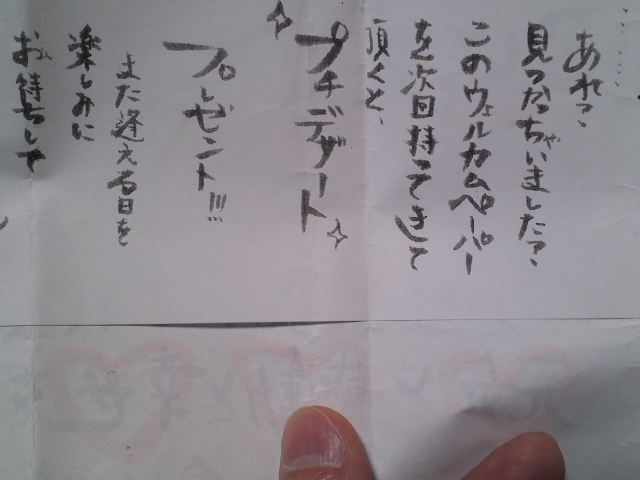 あれ?、
見つかっちゃいました?、
このウェルカムペーパー
を次回持ってきて
頂くと、
プチデザート
プレゼント!!!
また逢える日を
楽しみに
お待ちして